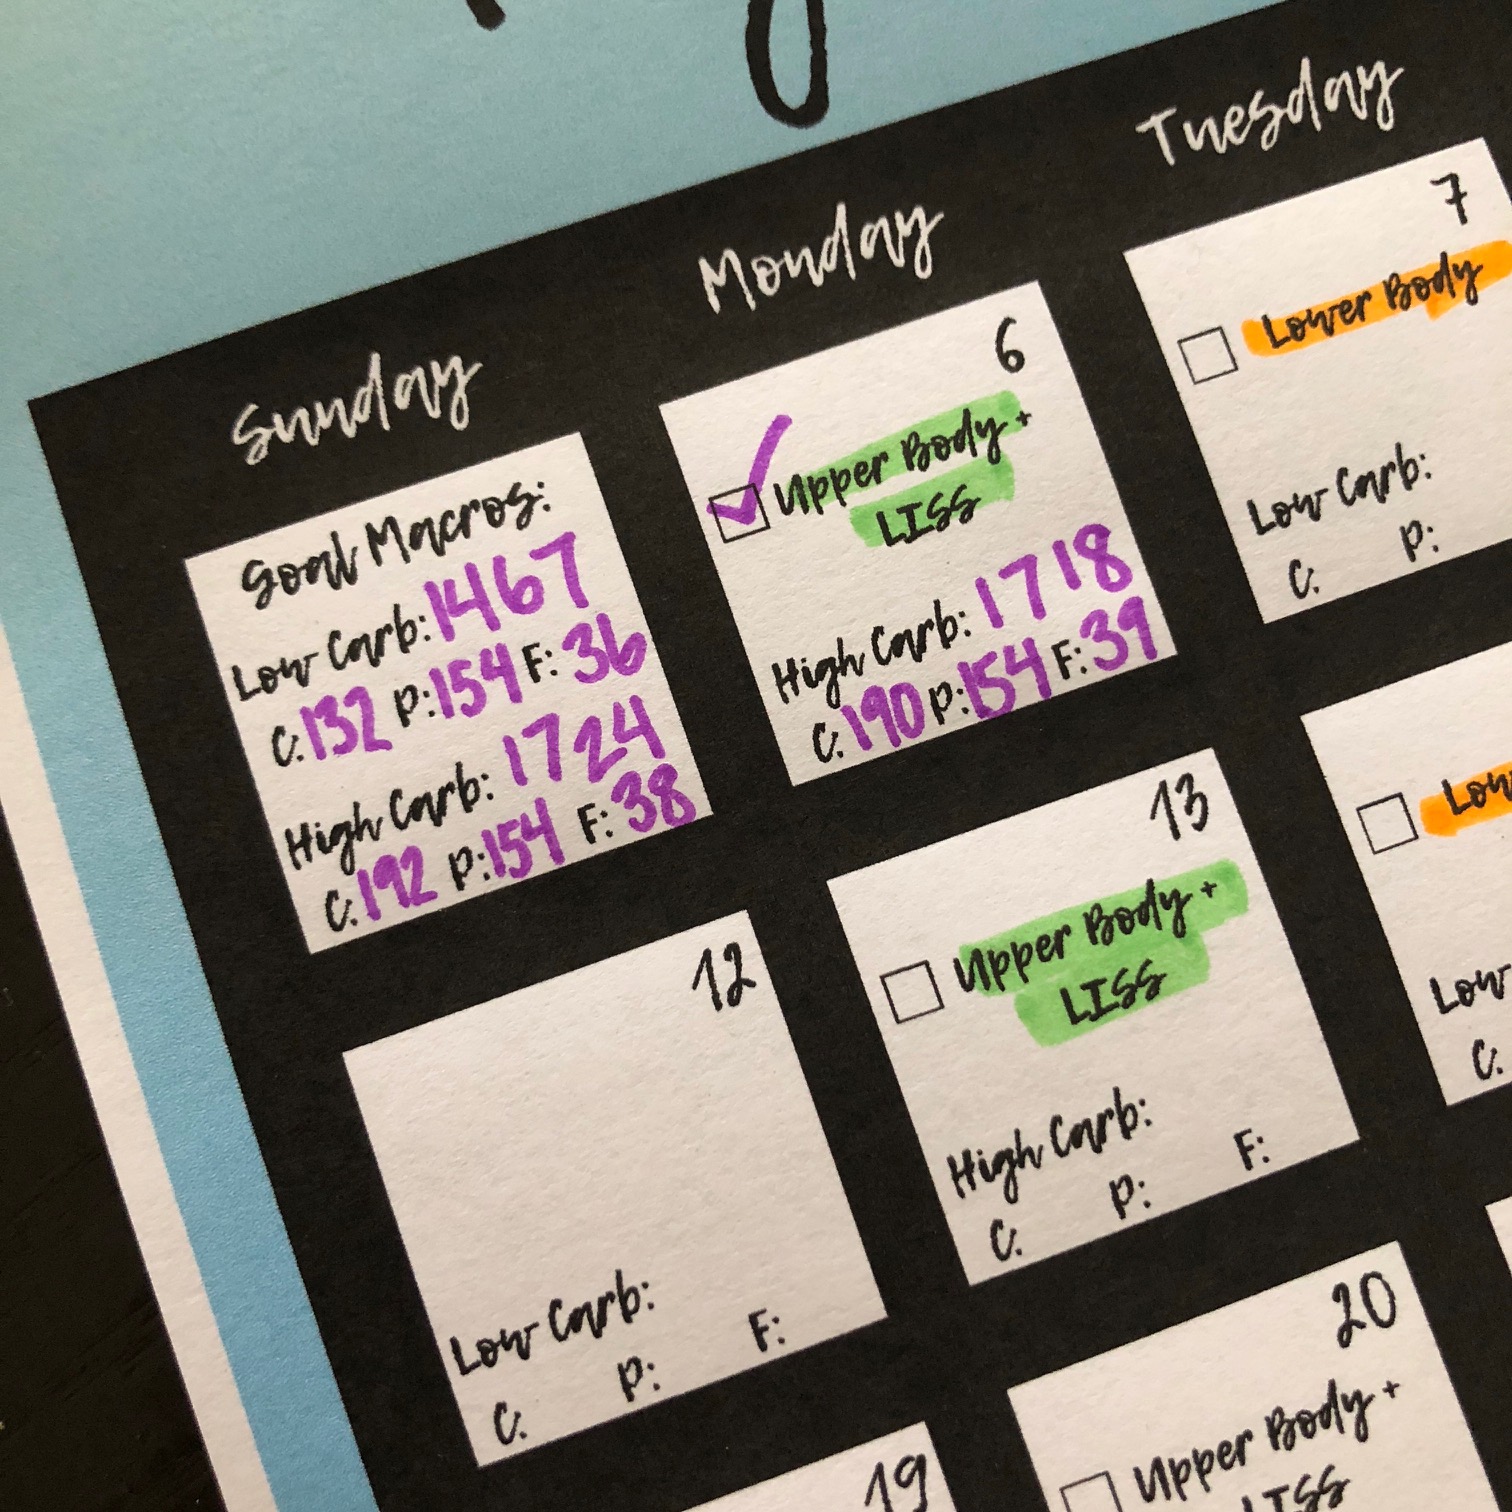 Sunday
Monday
Tuesday
Goal Macros:
Low Carb: 1467
C: 132 P: 154 F: 36
High Carb: 1724
C: 192 P: 154 F: 38
6
Upper Body +
LISS
High Carb: 1718
C: 190 P: 154 F: 39
7
Lower Body
Low Carb:
C: P:
12
Low Carb:
C: P: F:
13
Upper Body +
LISS
High Carb:
C: P: F:
Low
C:
19
20
Upper Body +
LISS